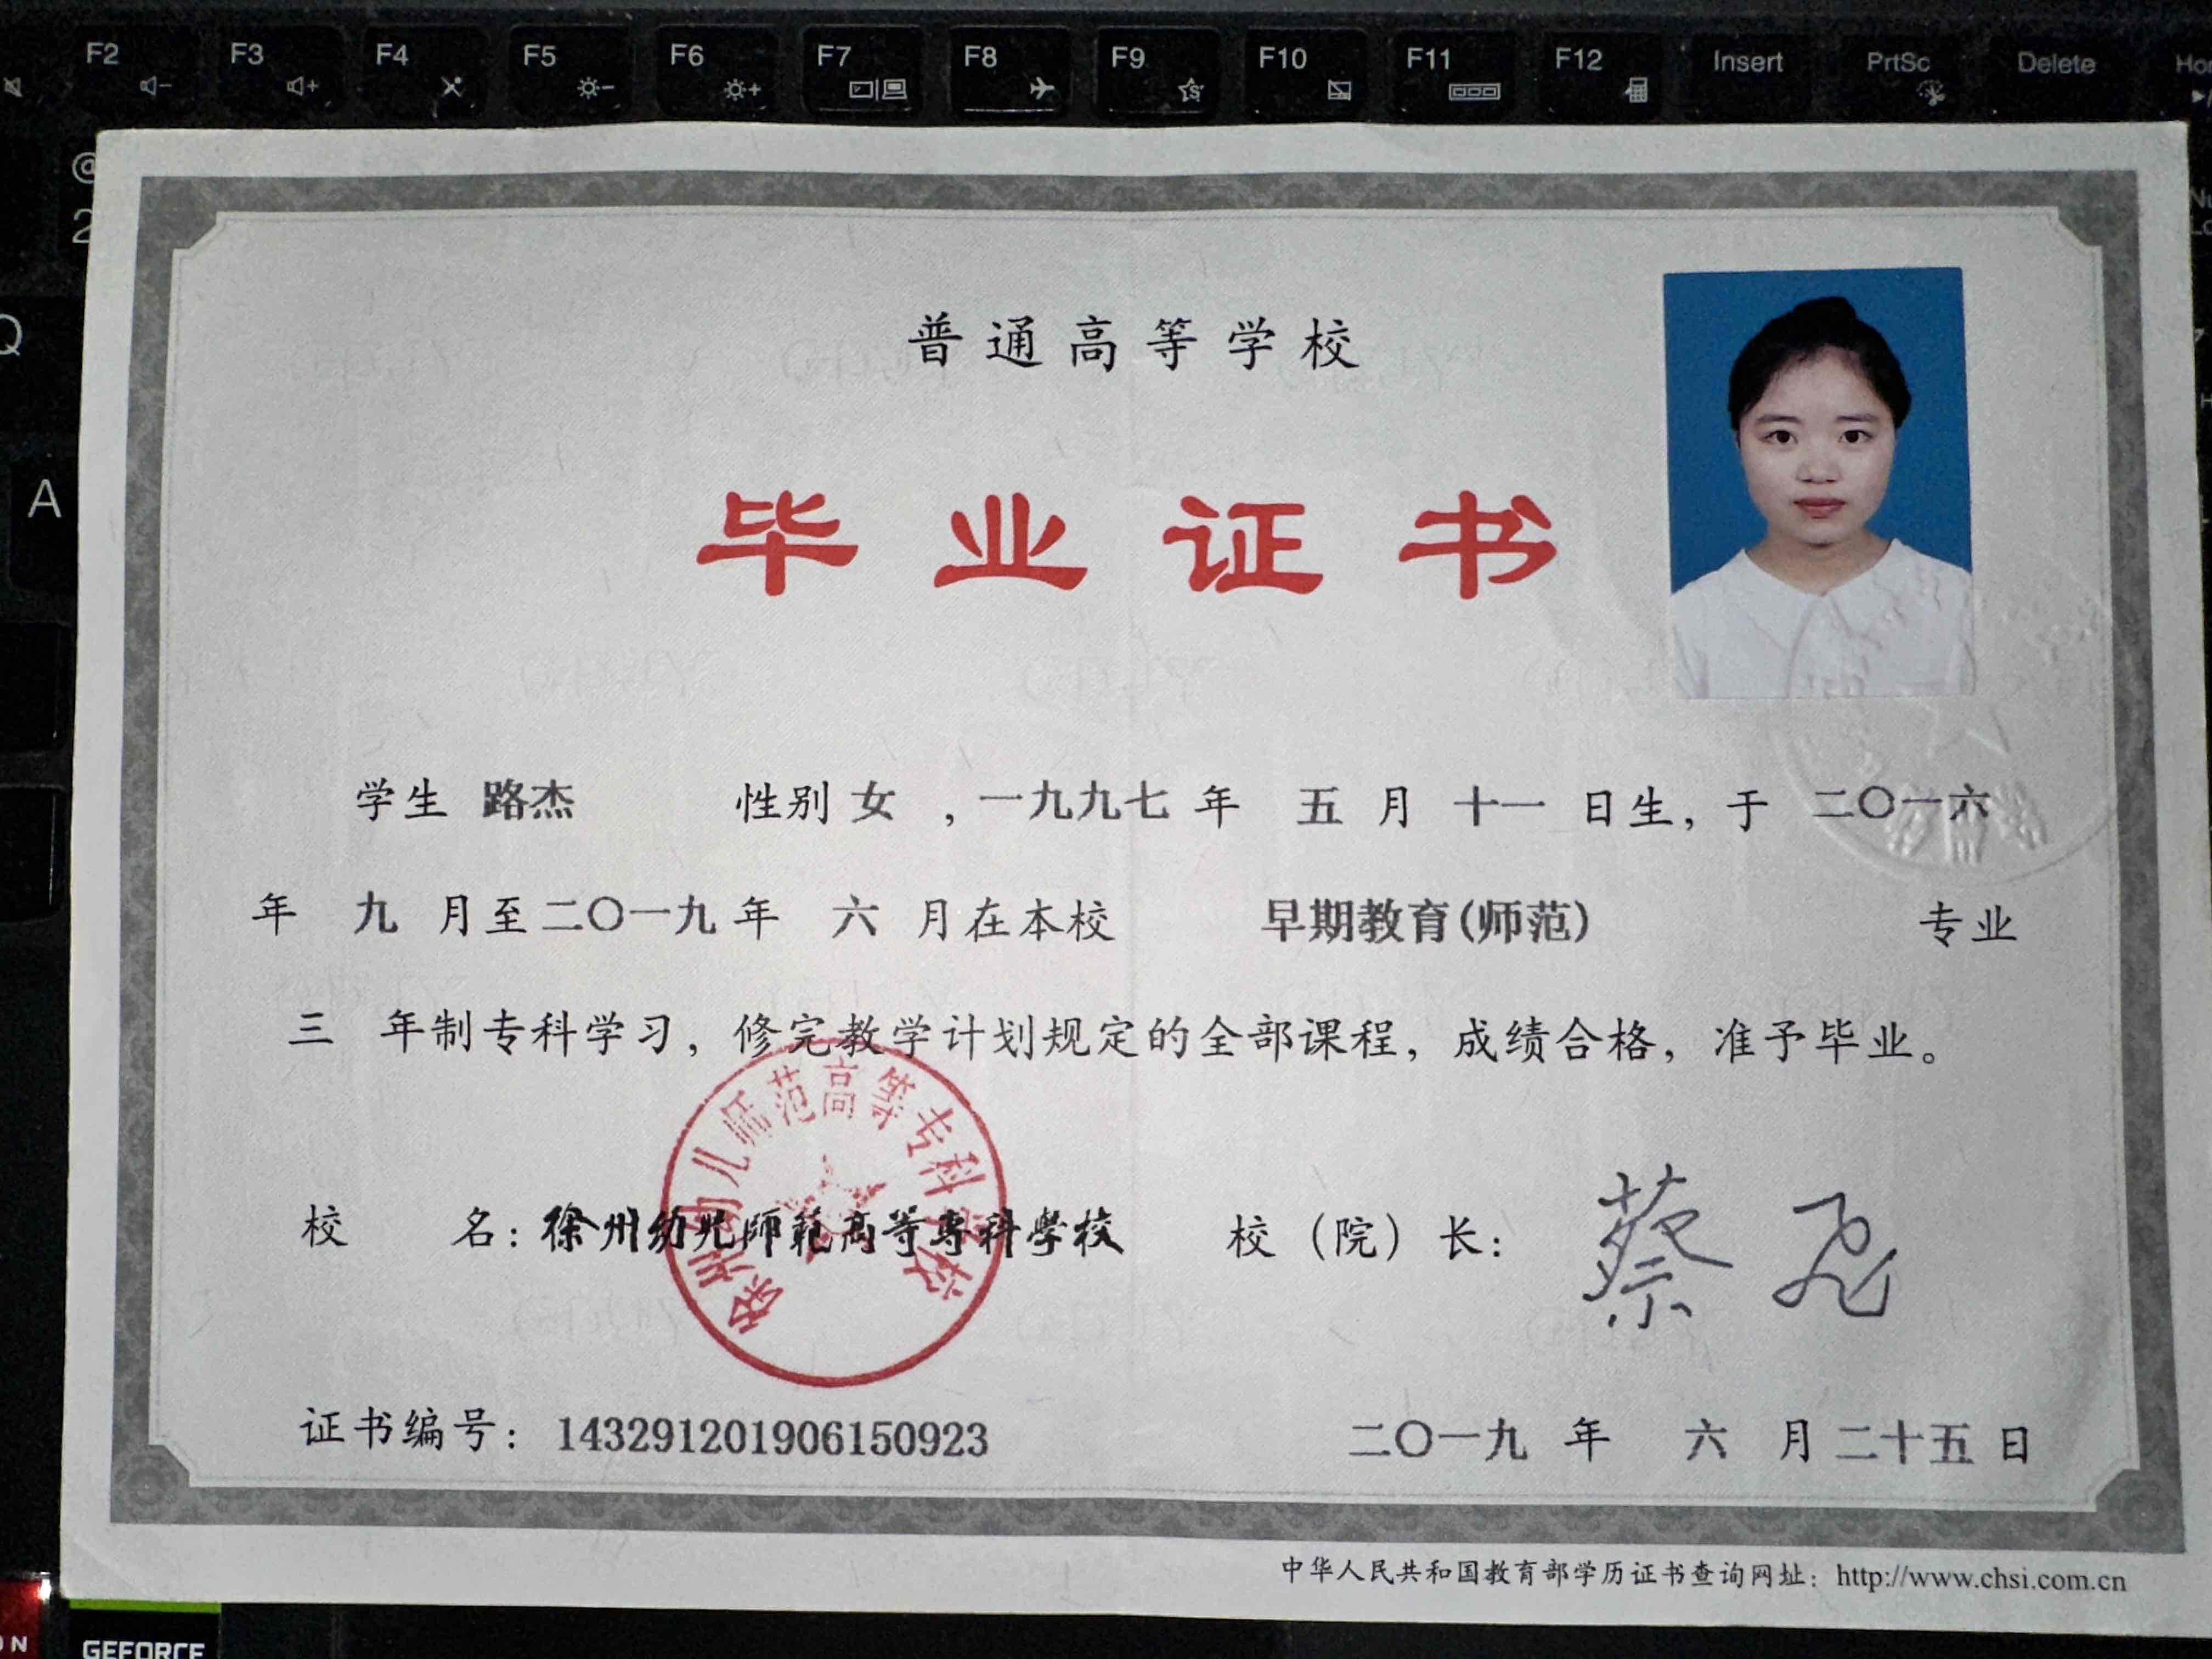 F2 F3 F4 F5 F6 F7 F8 F9 F10 F11 F12 Insert PrtSc Delete
@
2
Q
A
普通高等学校
毕业证书
学生 路杰 性别 女 ，一九九七 年 五 月 十一 日生，于 二〇一六
年 九 月至 二〇一九 年 六 月在本校 早期教育(师范) 专业
三 年制专科学习，修完教学计划规定的全部课程，成绩合格，准予毕业。
徐州幼儿师范高等专科学校
校 名：徐州幼児師範高等專科學校 校（院）长：蔡飞
证书编号：143291201906150923 二〇一九 年 六 月 二十五 日
中华人民共和国教育部学历证书查询网址：http://www.chsi.com.cn
GEFORCE